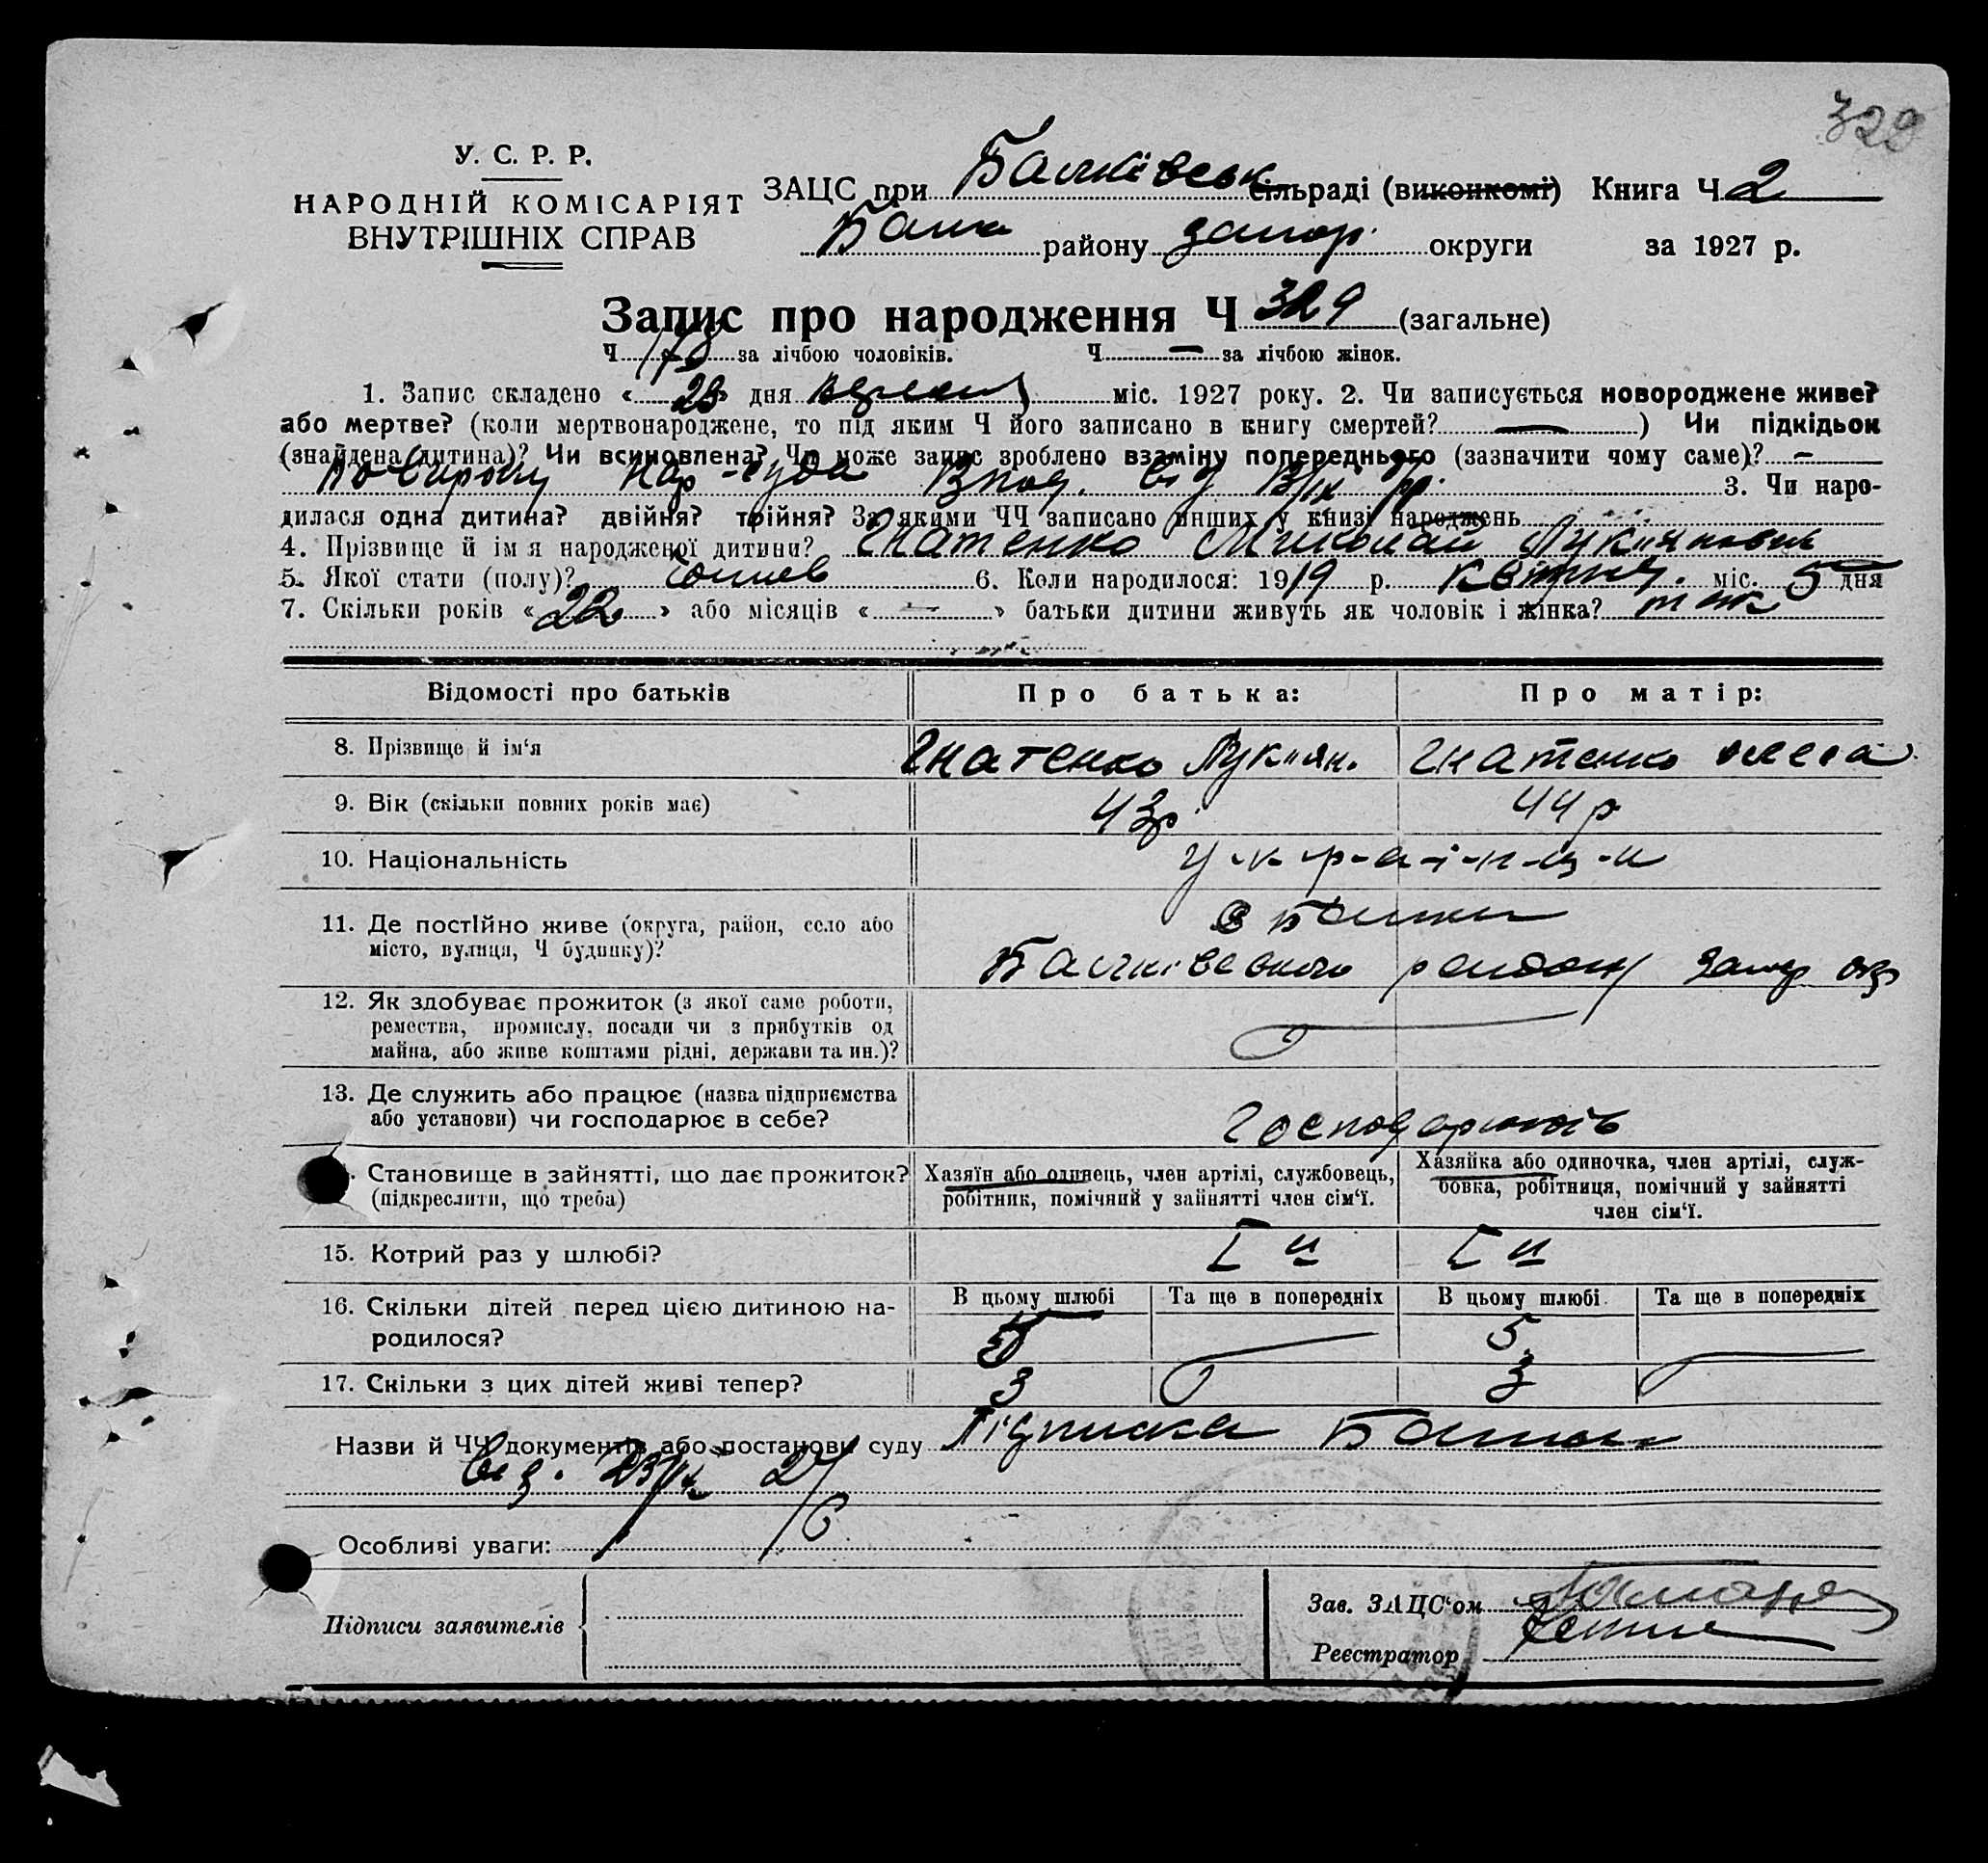 329
У. С. Р. Р.
НАРОДНІЙ КОМІСАРІЯТ
ВНУТРІШНІХ СПРАВ
ЗАЦС при Балківськ сільраді (виконкомі) Книга Ч 2
району Запор. округи за 1927 р.
Запис про народження Ч 329 (загальне)
Ч 178 за лічбою чоловіків. Ч — за лічбою жінок.
1. Запис складено « 23 » дня вересня міс. 1927 року. 2. Чи записується новороджене живе?
або мертве? (коли мертвонароджене, то під яким Ч його записано в книгу смертей? — ) Чи підкідьок
(знайдена дитина)? Чи всиновлена? Чи може запис зроблено взаміну попереднього (зазначити чому саме)? —
нар-суда від 3. Чи наро-
дилася одна дитина? двійня? трійня? За якими ЧЧ записано инших у книзі народжень
4. Прізвище й ім'я народженої дитини? Гнатенко Миколай Лукиянович
5. Якої стати (полу)? 6. Коли народилося: 1919 р. квітня міс. 5 дня
7. Скільки років « 22 » або місяців « — » батьки дитини живуть як чоловік і жінка? так
Відомості про батьків Про батька: Про матір:
8. Прізвище й ім'я Гнатенко Лукиян. Гнатенко
9. Вік (скільки повних років має) 43 р. 44 р
10. Національність у-к-р-а-ї-н-ц-и
11. Де постійно живе (округа, район, село або
місто, вулиця, Ч будинку)? с Балки
Балківського району Запор окр
12. Як здобуває прожиток (з якої саме роботи,
ремества, промислу, посади чи з прибутків од
майна, або живе коштами рідні, держави та ин.)?
13. Де служить або працює (назва підприємства
або установи) чи господарює в себе? господарюють
Становище в зайнятті, що дає прожиток?
(підкреслити, що треба)
Хазяїн або одинець, член артілі, службовець,
робітник, помічний у зайнятті член сім'ї.
Хазяйка або одиночка, член артілі, служ-
бовка, робітниця, помічний у зайнятті
член сім'ї.
15. Котрий раз у шлюбі? I й I й
16. Скільки дітей перед цією дитиною на-
родилося?
В цьому шлюбі Та ще в попередніх В цьому шлюбі Та ще в попередніх
5 — 5 —
17. Скільки з цих дітей живі тепер? 3 — 3 —
Назви й ЧЧ документів або постанови суду Підписка
від. 23/IX 27
Особливі уваги:
Підписи заявителів
Зав. ЗАЦС'ом
Реєстратор